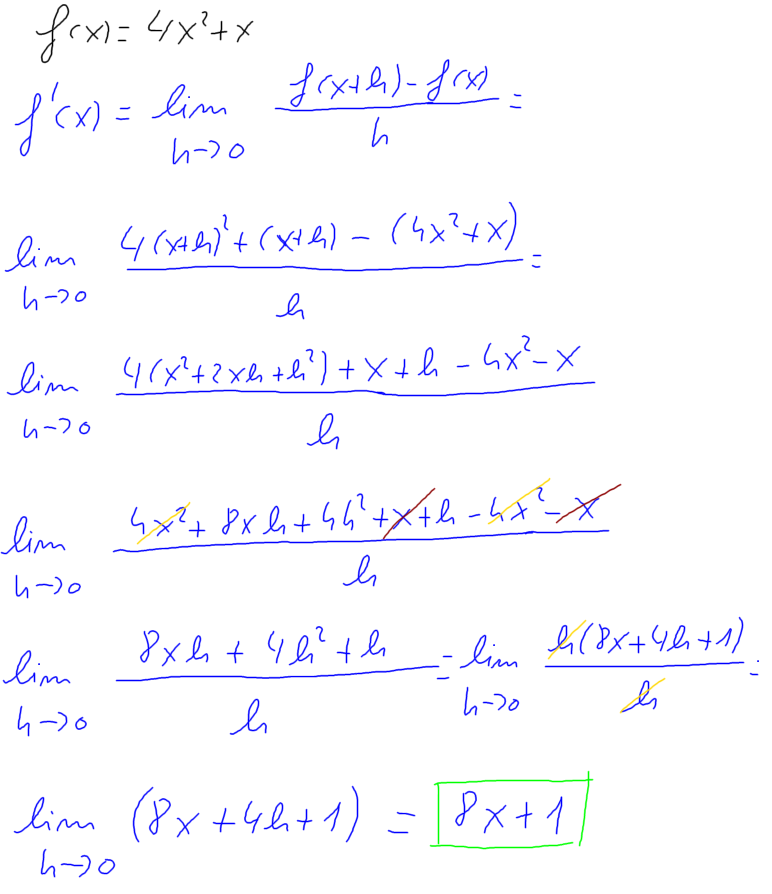 f(x) = 4x²+x
f'(x) = lim h→0 (f(x+h)-f(x))/h =
lim h→0 (4(x+h)²+(x+h) - (4x²+x))/h =
lim h→0 (4(x²+2xh+h²)+x+h-4x²-x)/h
lim h→0 (4x²+8xh+4h²+x+h-4x²-x)/h
lim h→0 (8xh+4h²+h)/h = lim h→0 (h(8x+4h+1))/h =
lim h→0 (8x+4h+1) = 8x+1